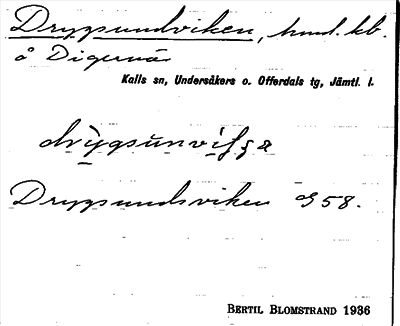 Drygsundviken, hml. kb.
å Digernäs
Kalls sn, Undersåkers o. Offerdals tg, Jämtl. l.
Drygsundsviken GS 58.
BERTIL BLOMSTRAND 1936